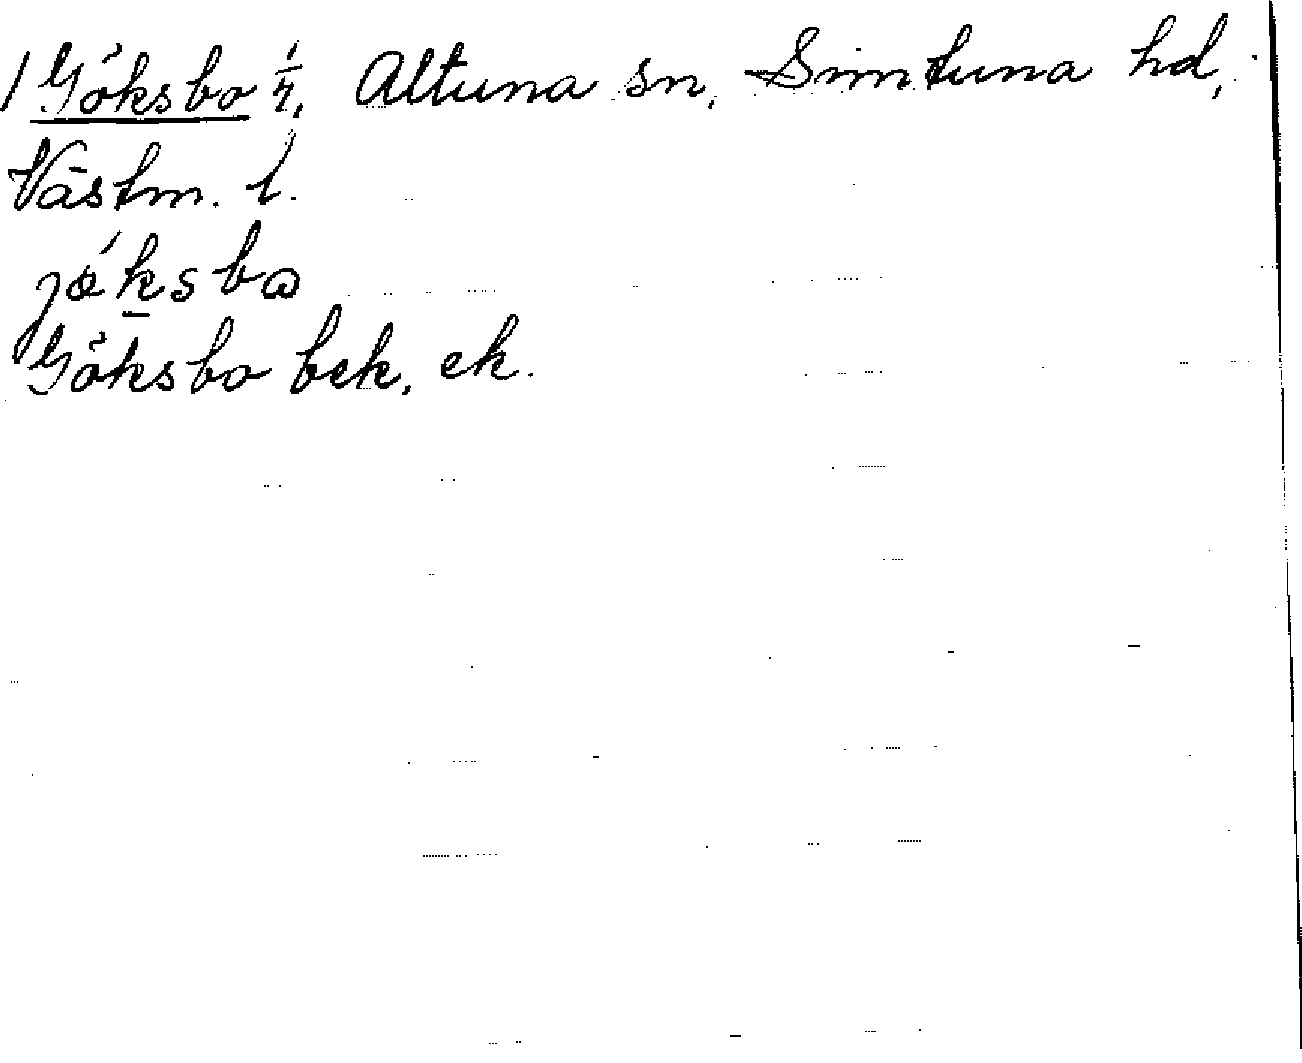 1 Göksbo 1/4, Altuna sn, Simtuna hd,
Västm. l.
jö́ksbɷ
Göksbo bek, ek.